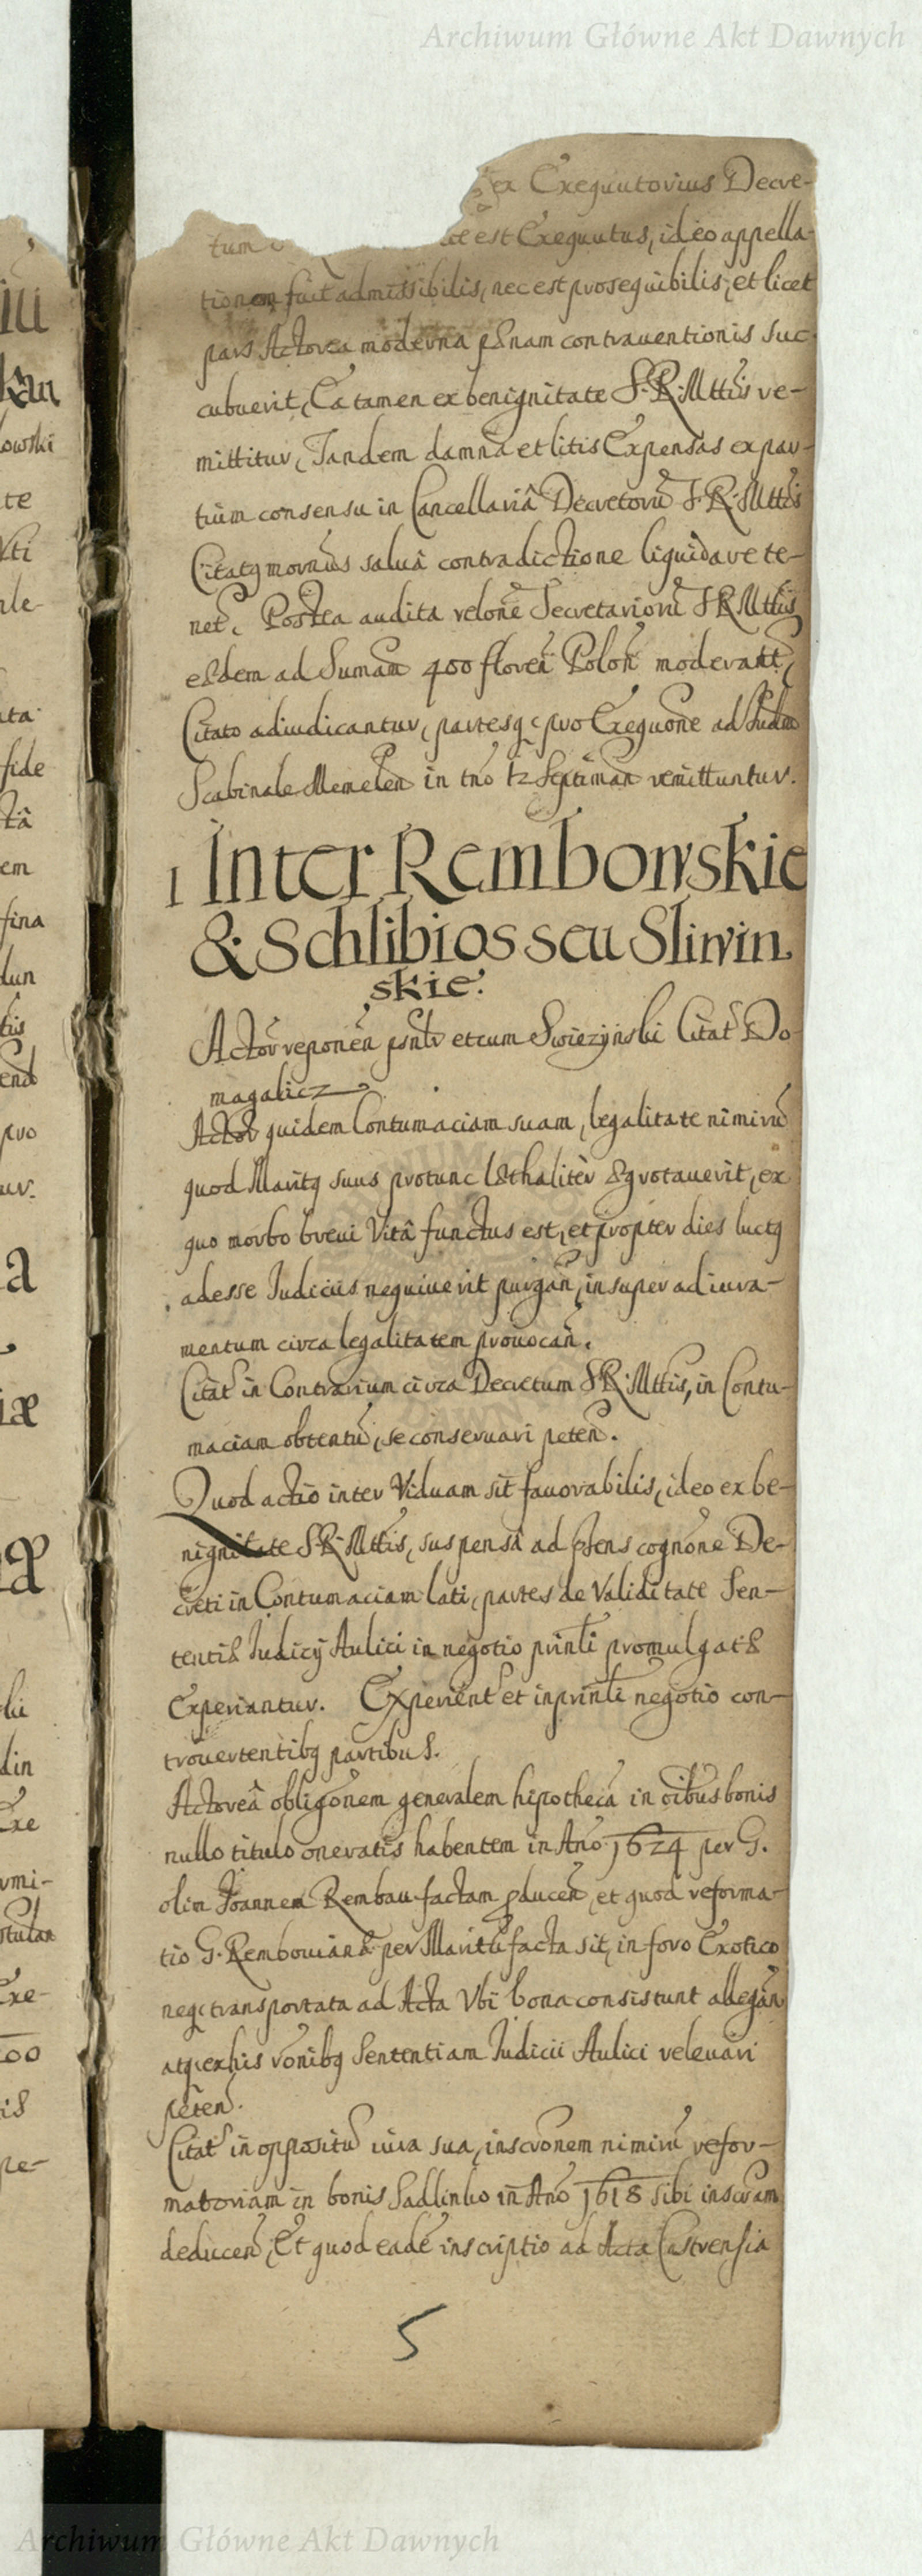 Archiwum Główne Akt Dawnych
ex Exequutorius Decre-
tum est Exequutus, ideo appella-
tionem fuit admissibilis, nec est prosequibilis, et licet
pars Actorea moderna pænam contrauentionis suc
cubuerit, Ea tamen ex benignitate S. R. Mttis re-
mittitur, Tandem damna et litis Expensas ex par-
tium consensu in Cancellariâ Decretorũ S. R. Mttis
Citatq mornus saluâ contradictione liquidare te-
net. Postea audita relone Secretariorũ S R Mttis
eædem ad Sumam 400 floren Polon moderantr,
Citato adiudicantur, partesq pro Exequone ad Judm
Scabinale Memelen in tno 12 Septiman remittuntur.
1 Inter Rembowskie
& Schlibios seu Sliwin
skie.
Actor reponen psntr et cum Swiezÿnski Citat Do-
magalicz
Actor quidem Contumaciam suam, legalitate nimirũ
quod Maritq suus protunc læthaliter ægrotauerit, ex
quo morbo breui Vitâ functus est, et propter dies luctq
adesse Iudiciis nequiuerit purgan, insuper ad iura-
mentum circa legalitatem prouocan.
Citat in Contrarium circa Decretum S R. Mttis, in Contu-
maciam obtentũ, se conseruari peten.
Quod actio inter Viduam sit fauorabilis, ideo ex be-
nignitate S. R. Mttis, suspensâ ad psens cognone De-
creti in Contumaciam lati, partes de Validitate Sen-
tentiæ Iudicÿ Aulici in negotio prinli promulgatæ
Experiantur. Experient et in prinli negotio con-
trouertentibq partibus.
Actoreâ obligonem generalem hipothecã in oibus bonis
nullo titulo oneratis habentem in Ano 1624 per G.
olim Joannem Rembau factam pducen, et quod reforma-
tio G. Rembouiana per Maritũ facta sit, in foro Exotico
neq transportata ad Acta Vbi bona consistunt allegan
atq ex his ronibq Sententiam Iudicii Aulici releuari
peten.
Citat in oppositũ iura sua, inscronem nimirũ refor-
matoriam in bonis Sadlinko in Ano 1618 sibi inscram
deducen, Et quod eadẽ inscriptio ad Acta Castrensia
5
Archiwum Główne Akt Dawnych